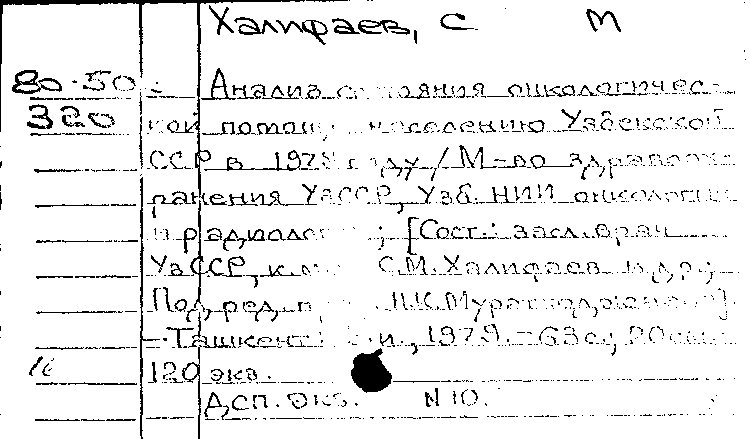 Халифаев, С М
80-50 : Анализ состояния онкологичес-
320 кой помощи населению Узбекской
ССР в 1978 году / М-во здравоох-
ранения УзССР, Узб. НИИ онкологии
и радиологии ; [Сост.: засл. врач
УзССР, С.М. Халифаев и др.;
Под ред. Н.К. Муратходжаева].
– Ташкент: Б.и., 1979. – 63 с.; 20 см.
16 120 экз.
ДСП. Экз. N 10.